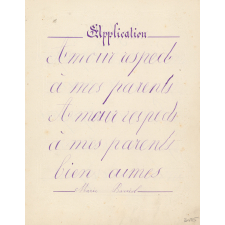 Application
Amour respect
à mes parents
Amour respect
à mes parents
bien aimés
Marie